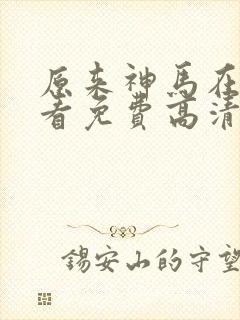 原来神马在
看免费高清
锡安山的守望